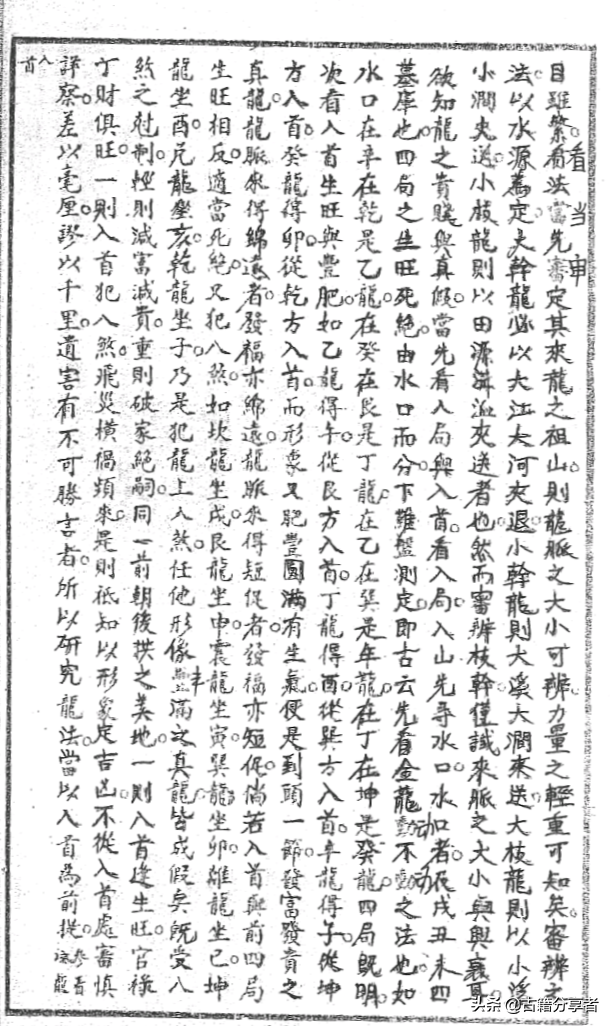 目雖繁看法當先審定其來龍之祖山則龍脈之大小可辨力量之輕重可知矣審辨之
法以水源為定大幹龍必以大江大河夾送小幹龍則大溪大澗來送大枝龍則以小溪
小澗夾送小枝龍則以田源溝洫夾送者也然而審辨枝幹僅識來脈之大小與興衰耳
欲知龍之貴賤與真假當先看入局與入首看入局入山先尋水口水口者辰戌丑未四
墓庫也四局之生旺死絕由水口而分下難盤測定即古云先看金龍動不動之法也如
水口在辛在乾是乙龍在癸在艮是丁龍在乙在巽是年龍在丁在坤是癸龍四局既明
次看入首生旺與豐肥如乙龍得午從艮方入首丁龍得酉從巽方入首辛龍得子從坤
方入首癸龍得卯從乾方入首而形象又肥豐圓滿有生氣便是到頭一節發富發貴之
真龍龍脈來得綿遠者發福亦綿遠龍脈來得短促者發福亦短促倘若入首與前四局
生旺相反適當死絕又犯八煞如坎龍坐戌艮龍坐申震龍坐寅巽龍坐卯離龍坐已坤
龍坐酉兌龍坐亥乾龍坐子乃是犯龍上八煞任他形像豐滿之真龍皆成假矣既受八
煞之尅刑輕則減富減貴重則破家絕嗣同一前朝後拱之美地一則入首逢生旺官祿
丁財俱旺一則入首犯八煞飛災橫禍頻來是則祇知以形象定吉凶不從入首處審慎
詳察差以毫厘謬以千里遺害有不可勝言者所以研究龍法當以入首為前提
入首
看 当 审
动 动
丰
头条 @古籍分享者